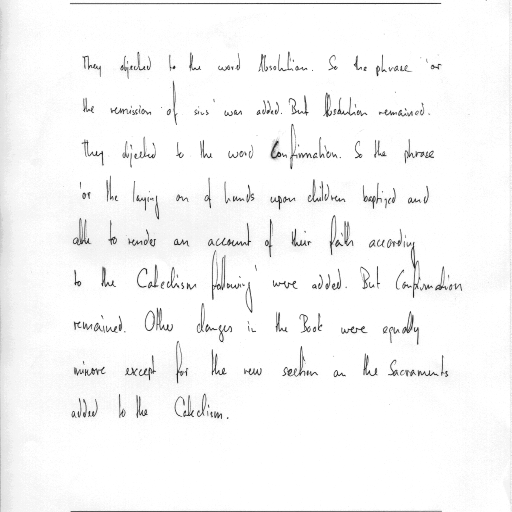 They objected to the word Absolution. So the phrase 'or
the remission of sins' was added. But Absolution remained.
They objected to the word Confirmation. So the phrase
'or the laying on of hands upon children baptized and
able to render an account of their faith according
to the Catechism following' were added. But Confirmation
remained. Other changes in the Book were equally
minore except for the new section on the Sacraments
added to the Catechism.